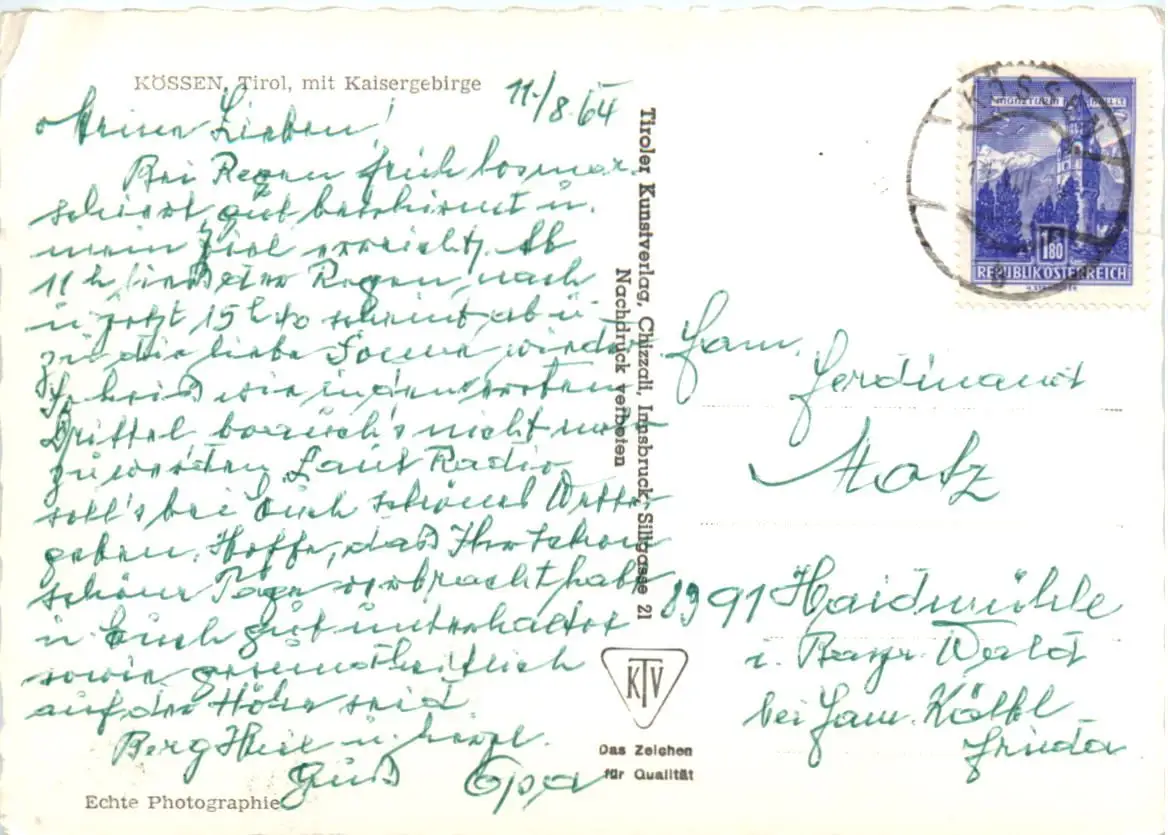 KÖSSEN, Tirol, mit Kaisergebirge
11./8.64
Meine Lieben!
Bei Regen früh losmar-
schiert, gut beschirmt u.
mein Ziel erreicht. Ab
11 h ließ der Regen nach
u. jetzt 15 h 40 scheint ab u
zu die liebe Sonne wieder.
So heiß wie in den ersten
Drittel brauch's nicht mehr
zu werden. Laut Radio
soll's bei Euch schönes Wetter
geben. Hoffe, daß Ihr schon
schöne Tage verbracht habt
u. Euch gut unterhaltet
sowie gesundheitlich
auf der Höhe seid.
Berg Heil u. herzl.
Gruß Opa
Echte Photographie
Tiroler Kunstverlag, Chizzali, Innsbruck, Sillgasse 21
Nachdruck verboten
KTV
Das Zeichen
für Qualität
KÖSSEN
MÜNZTURM HALL I.T.
1.80
REPUBLIK ÖSTERREICH
Fam.
Ferdinand
Motz
8391 Haidmühle
i. Bayr. Wald
bei Fam. Kölbl
Frieda